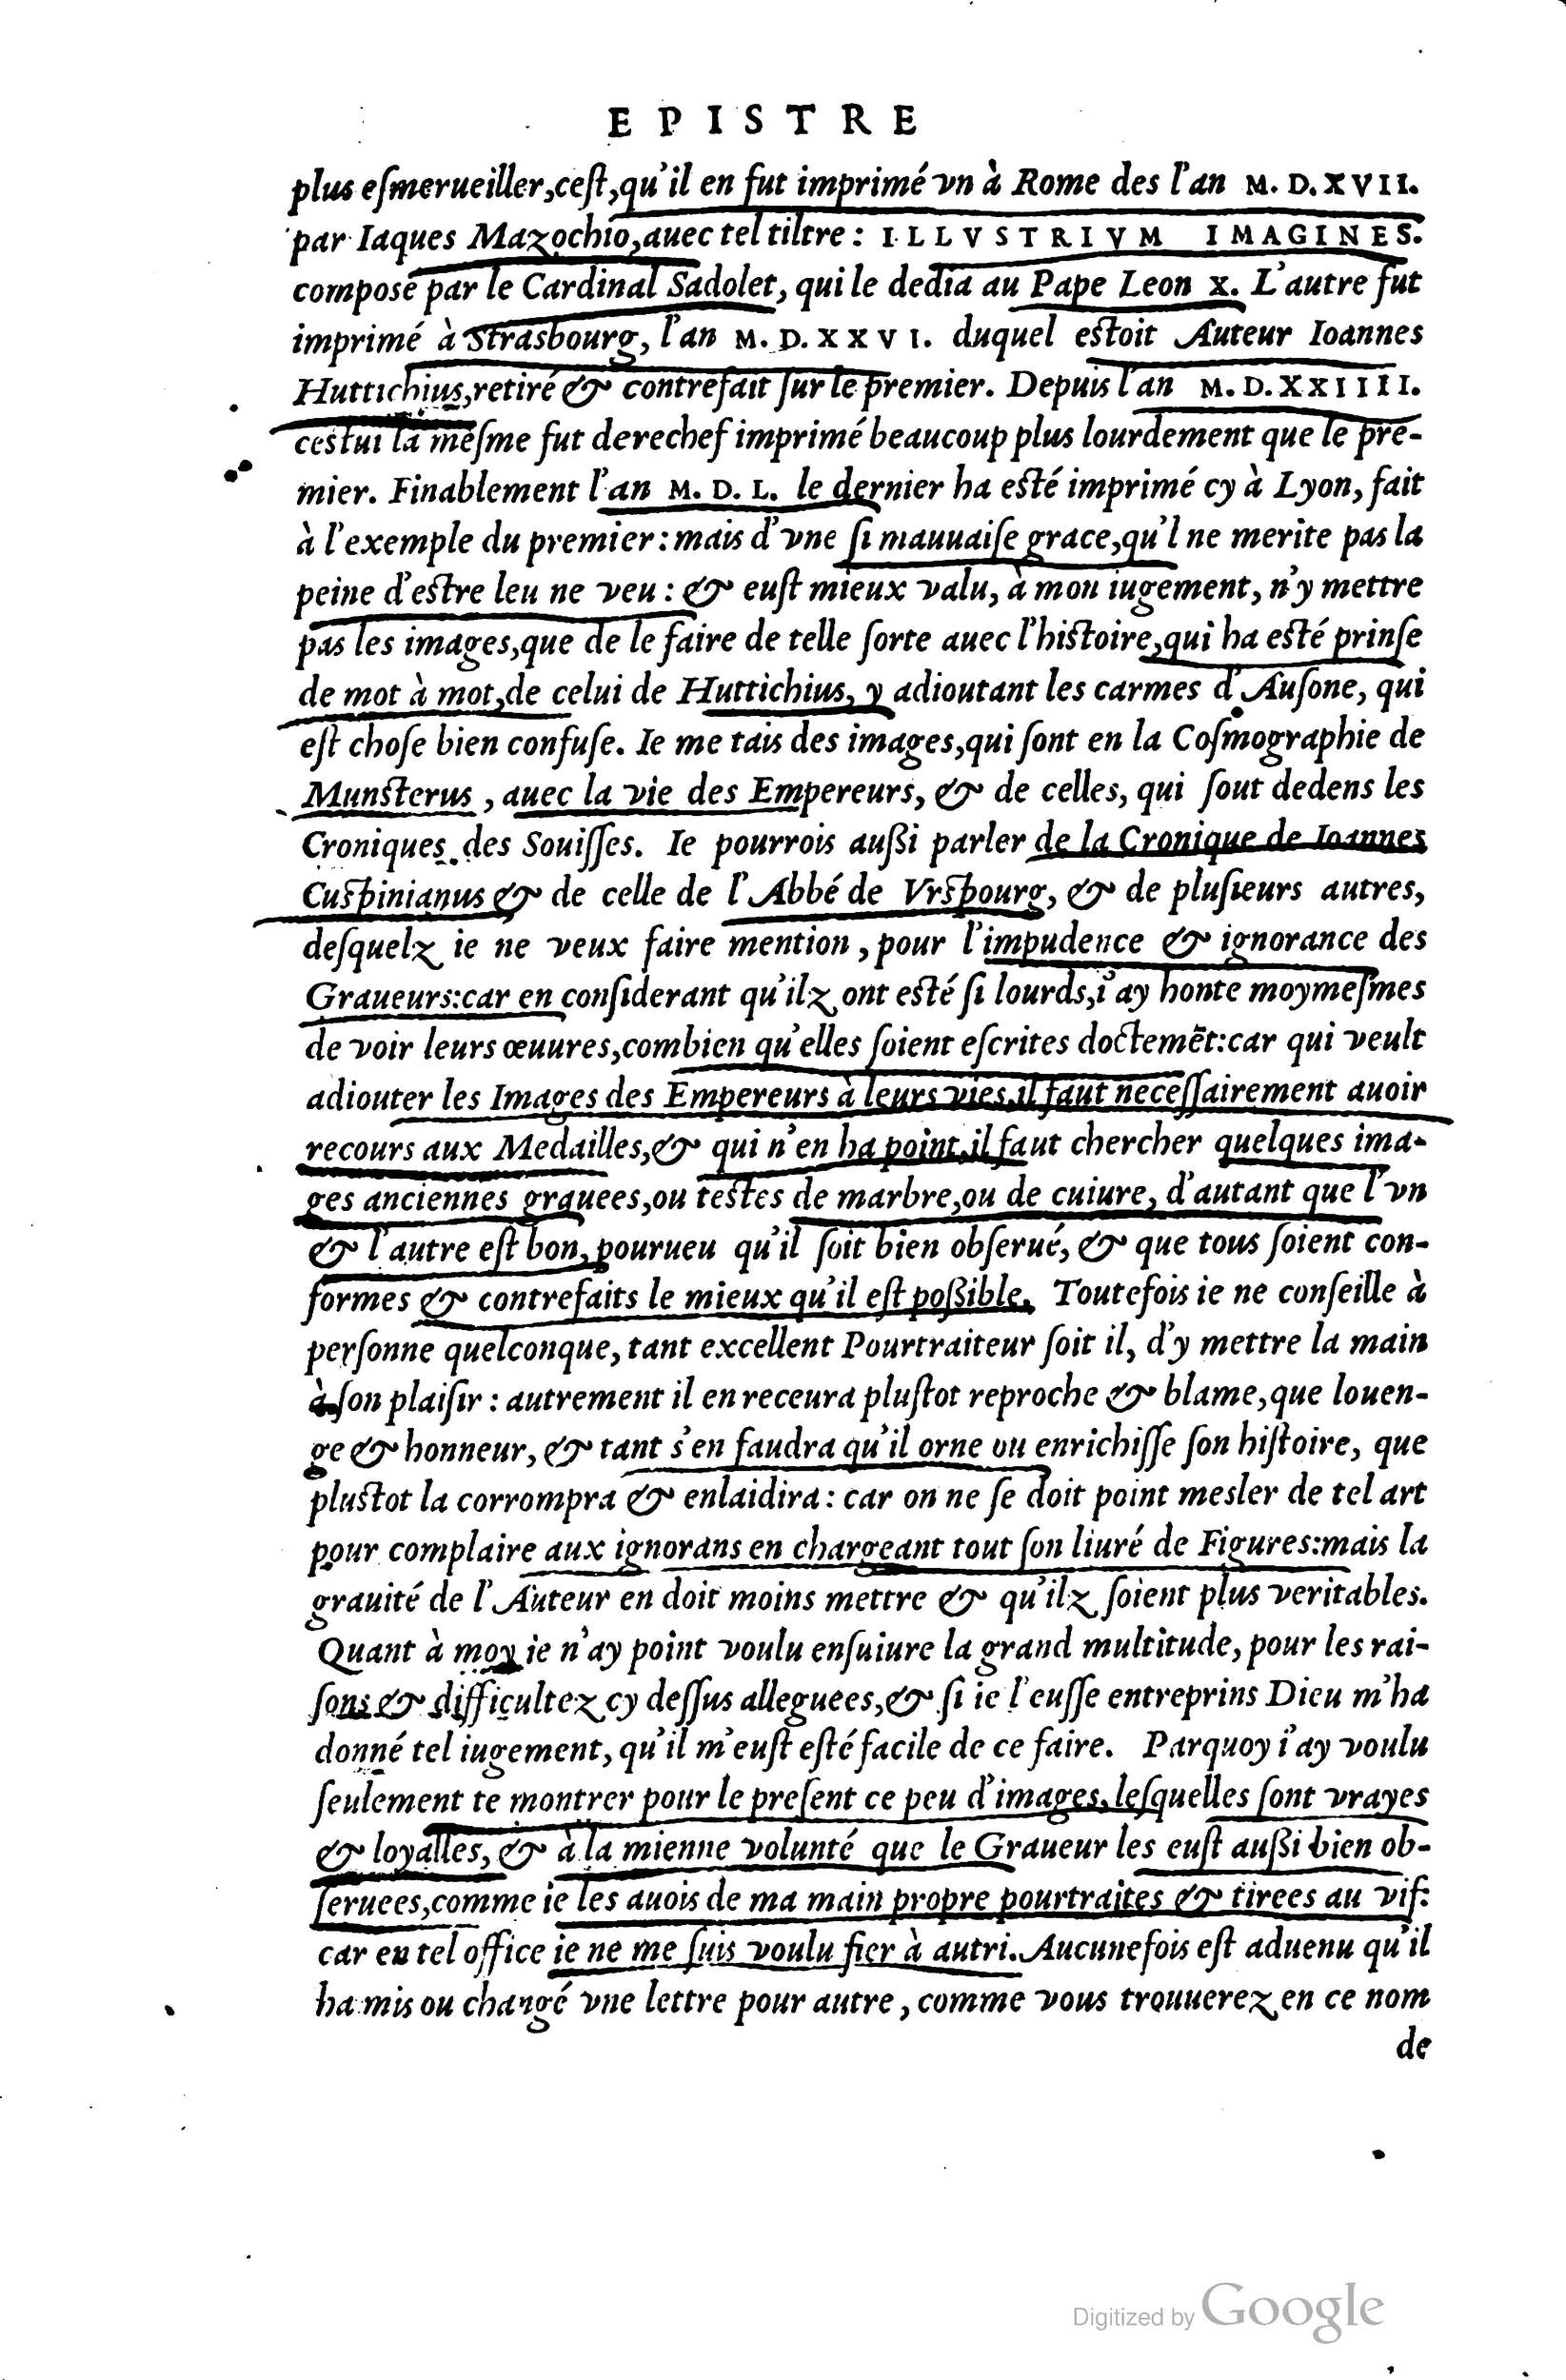 EPISTRE
plus eſmerueiller,ceſt,qu'il en fut imprimé vn à Rome des l'an M. D. XVII.
par Iaques Mazochio,auec tel tiltre: ILLVSTRIVM IMAGINES.
composé par le Cardinal Sadolet, qui le dedia au Pape Leon X. L'autre fut
imprimé à Strasbourg, l'an M. D. XXVI. duquel estoit Auteur Ioannes
Huttichius,retiré & contrefait ſur le premier. Depuis l'an M. D. XXIIII.
cestui la meſme fut derechef imprimé beaucoup plus lourdement que le pre-
mier. Finablement l'an M. D. L. le dernier ha esté imprimé cy à Lyon, fait
à l'exemple du premier: mais d'vne ſi mauuaiſe grace,qu'l ne merite pas la
peine d'estre leu ne veu: & euſt mieux valu, à mon iugement, n'y mettre
pas les images,que de le faire de telle ſorte auec l'histoire,qui ha esté prinſe
de mot à mot,de celui de Huttichius, y adioutant les carmes d'Auſone, qui
eſt choſe bien confuſe. Ie me tais des images,qui ſont en la Coſmographie de
Munsterus, auec la vie des Empereurs, & de celles, qui ſout dedens les
Croniques des Souiſſes. Ie pourrois außi parler de la Cronique de Ioannes
Cuspinianus & de celle de l'Abbé de Vrspourg, & de pluſieurs autres,
deſquelz ie ne veux faire mention, pour l'impudence & ignorance des
Graueurs:car en conſiderant qu'ilz ont esté ſi lourds,i'ay honte moymeſmes
de voir leurs œuures,combien qu'elles ſoient eſcrites doctemēt:car qui veult
adiouter les Images des Empereurs à leurs vies,il faut neceſſairement auoir
recours aux Medailles,& qui n'en ha point,il faut chercher quelques ima-
ges anciennes grauees,ou testes de marbre,ou de cuiure, d'autant que l'vn
& l'autre eſt bon, pourueu qu'il ſoit bien obſerué, & que tous ſoient con-
formes & contrefaits le mieux qu'il eſt poßible. Toutefois ie ne conſeille à
perſonne quelconque, tant excellent Pourtraiteur ſoit il, d'y mettre la main
à ſon plaiſir: autrement il en receura pluſtot reproche & blame, que louen-
ge & honneur, & tant s'en faudra qu'il orne ou enrichiſſe ſon hiſtoire, que
plustot la corrompra & enlaidira: car on ne ſe doit point mesler de tel art
pour complaire aux ignorans en chargeant tout ſon liuré de Figures:mais la
grauité de l'Auteur en doit moins mettre & qu'ilz ſoient plus veritables.
Quant à moy ie n'ay point voulu enſuiure la grand multitude, pour les rai-
ſons & difficultez cy deſſus alleguees,& ſi ie l'euſſe entreprins Dieu m'ha
donné tel iugement, qu'il m'euſt eſté facile de ce faire. Parquoy i'ay voulu
ſeulement te montrer pour le preſent ce peu d'images, leſquelles ſont vrayes
& loyalles, & à la mienne volunté que le Graueur les euſt außi bien ob-
ſeruees,comme ie les auois de ma main propre pourtraites & tirees au vif:
car en tel office ie ne me ſuis voulu fier à autri. Aucunefois eſt aduenu qu'il
ha mis ou changé vne lettre pour autre, comme vous trouuerez en ce nom
de
Digitized by Google